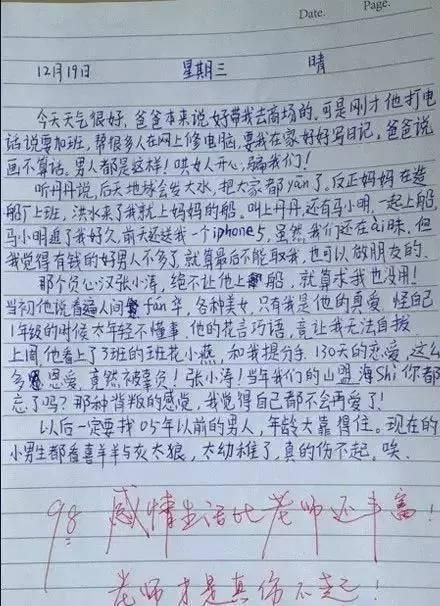 Date.
Page.
12月19日 星期三 晴
今天天气很好,爸爸本来说好带我去商场的,可是刚才他打电
话说要加班,帮很多人在网上修电脑,要我在家好好写日记,爸爸说
画不算话。男人都是这样!哄女人开心,骗我们!
听丹丹说,后天地球会发大水,把大家都yān了。反正妈妈在造
船厂上班,洪水来了我就上妈妈的船。叫上丹丹,还有马小明,一起上船,
马小明追了我好久,前天还送我一个iphone5,虽然我们还在ai昧,但
我觉得有钱的好男人不多了,就算最后不能取我,也可以做朋友的。
那个负心汉张小涛,绝不让他上船,就算求我也没用!
当初他说看遍人间fán华,各种美女,只有我是他的真爱,怪自己
1年级的时候太年轻不懂事,他的花言巧语,竟让我无法自拔
上周,他看上了3班的班花小燕,和我提分手,130天的恋爱,这么
多恩爱,竟然被辜负!张小涛!当年我们的山盟海Shi你都
忘了吗?那种背叛的感觉,我觉得自己都不会再爱了!
以后一定要找05年以前的男人,年龄大靠得住。现在的
小男生都看喜羊羊与灰太狼,太幼稚了,真的伤不起,唉。
98 感情生活比老师还丰富!
老师才是真伤不起!